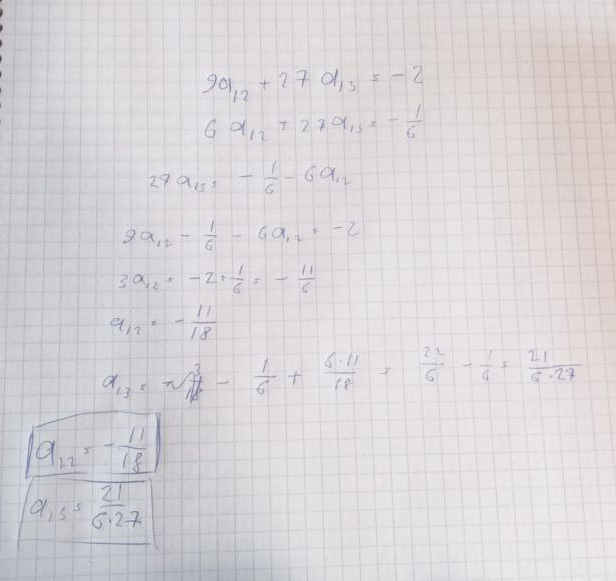 9a₁₂ + 27a₁₃ = -2
6a₁₂ + 27a₁₃ = -1/6
27a₁₃ = -1/6 - 6a₁₂
9a₁₂ - 1/6 - 6a₁₂ = -2
3a₁₂ = -2 + 1/6 = -11/6
a₁₂ = -11/18
a₁₃ = - 1/6 + 6·11/18 = 22/6 - 1/6 = 21/6·27
a₁₂ = -11/18
a₁₃ = 21/6·27